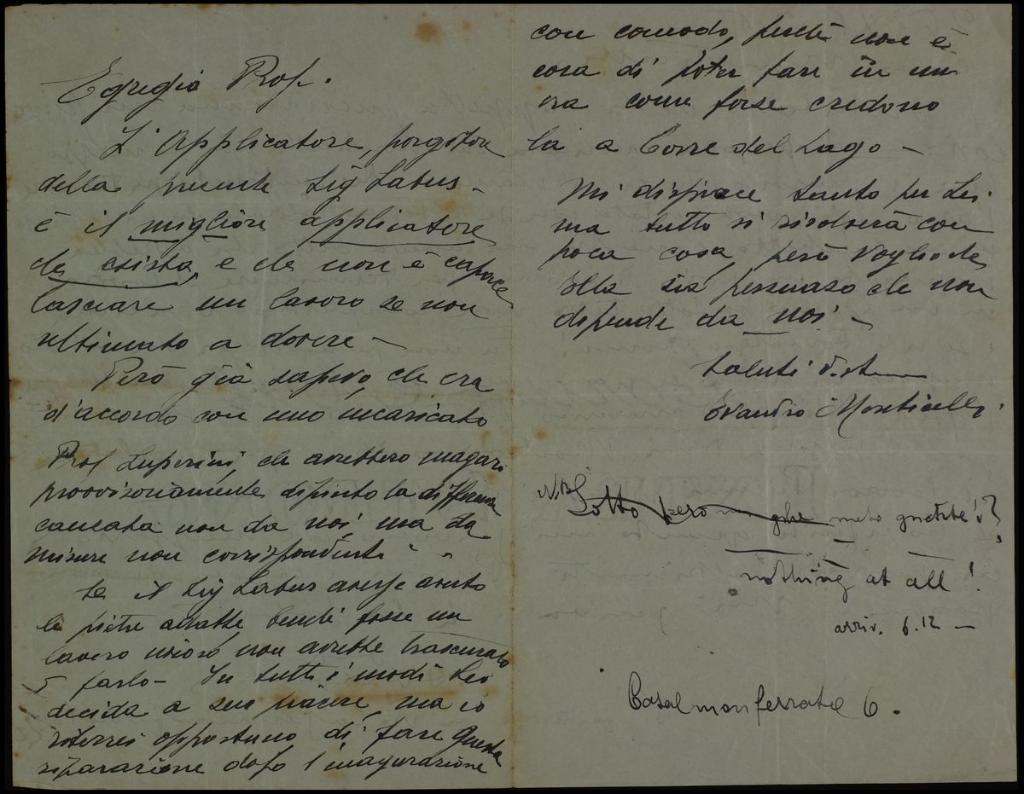 Egregio Prof.
L'Applicatore, porgitore
della presente Sig Labus -
è il migliore applicatore
che esista, e che non è capace
lasciare un lavoro se non
ultimato a dovere -
Però già sapevo, che era
d'accordo con uno incaricato
Prof Luperini, che avrebbero magari
provvisoriamente dipinto la differenza
causata non da noi ma da
misure non corrispondenti -
Se il Sig Labus avesse avuto
le pietre adatte benché fosse un
lavoro non avrebbe trascurato
farlo - In tutti i modi Lei
decida a suo piacere, ma io
riterrei opportuno di fare questa
riparazione dopo l'inaugurazione
con comodo, perché non è
cosa di poter fare in un
ora come forse credono
la a Torre del Lago -
Mi dispiace tanto per Lei
ma tutto si risolverà con
poca cosa, però voglio che
Ella sia persuaso che non
dipende da noi -
Saluti
Evandro Monticelli
N.B. Sotto però
nothing at all!
arriv. 6.12 -
Casalmonferrato 6.